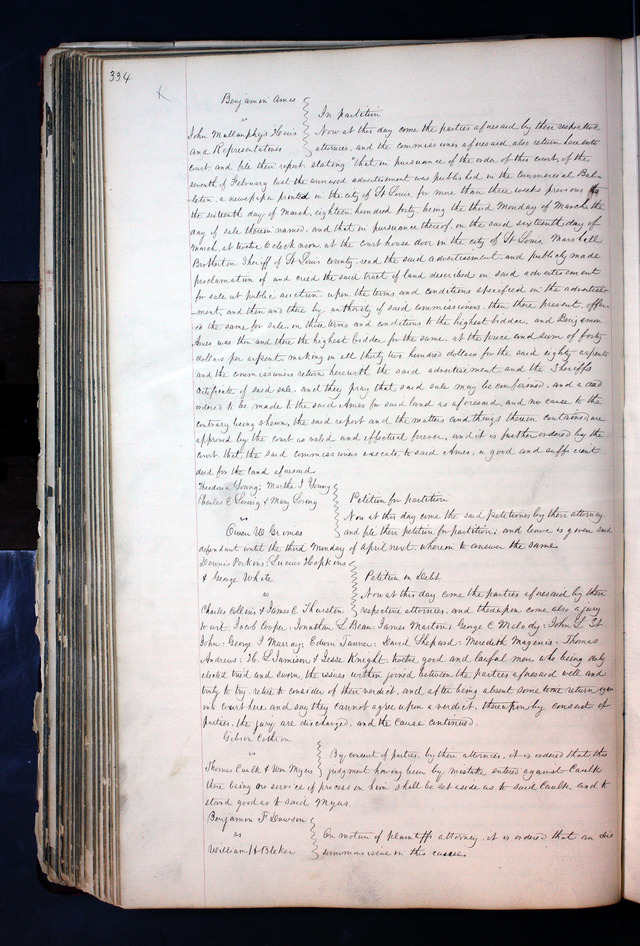 334
Benjamin Ames
vs
In partition
John Mullamphys Heirs
and Representatives
Now at this day come the parties aforesaid by their respective
attornies, and the commissioners aforesaid also return here into
court and file their report stating "that in pursuance of the order of this court, of the
seventh of February last the annexed advertisement was published in the Commercial Bulle
leten a newspaper printed in the city of St Louis for more than three weeks previous to
the sixteenth day of March, eighteen hundred forty being the third Monday of March the
day of sale therein named, and that in pursuance thereof, on the said sixteenth day of
March, at twelve O clock noon, at the court house door in the city of St Louis, Marshall
Brotherton Sheriff of St Louis county, read the said advertisement, and publicly made
proclamation of and cried the said tract of land described in said advertisement
for sale at public auction upon the terms and conditions specified in the advertise
ment, and then and there by authority of said commissioners, then there present, offer
ed the same for sale, on those terms and conditions to the highest bidder, and Benjamin
Ames was then and there the highest bidder for the same, at the price and sum of forty
dollars per arpent, making in all thirty two hundred dollars for the said eighty arpents
and the commissioners return herewith the said advertisement and the Sheriffs
certificate of said sale, and they pray that said sale may be confirmed, and a deed
ordered to be made to the said Ames for said land as aforesaid, and no cause to the
contrary being shewn, the said report and the matters and things therein contained are
approved by the court as valid and effectual forever, and it is further ordered by the
court, that the said commissioners execute to said Ames, a good and sufficient
deed for the land aforesaid.
Theodore Young, Martha I Young
Charles E Loring & Mary Loring
vs
Owen W Grimes
Petition for partition
Now at this day come the said petitioners by their attorney
and file their petition for partition, and leave is given said
defendant until the third Monday of April next, wherein to answer the same.
Dennis Perkins, Lucius Hopkins
& George White
vs
Charles Collins & James C Thurston
Petition in Debt
Now at this day come the parties aforesaid by their
respective attornies, and thereupon come also a jury
to wit, Jacob Cooper, Jonathan L Bean, James Marton, George C Melody, John L St
John, George I Murray, Edwin Tanner, David Shepard, Meredith Magenis, Thomas
Andrews, H. L Jamison & Jesse Knight, twelve good and lawful men who being duly
elected tried and sworn, the issues within joined between the parties aforesaid well and
truly to try, retire to consider of their verdict, and after being absent some time return again
into court here and say they cannot agree upon a verdict, thereupon by consent of
parties, the jury are discharged, and the cause continued.
Gibson Cothron
vs
Thomas Caulk & Wm Myers
By consent of parties, by their attornies, it is ordered that the
judgment having been by mistake entered against Caulk
there being no service of process on him shall be set aside as to said Caulk, and to
stand good as to said Myers.
Benjamin F Dawson
vs
William H Bleker
On motion of plaintiffs attorney, it is ordered that an
commission in this cause